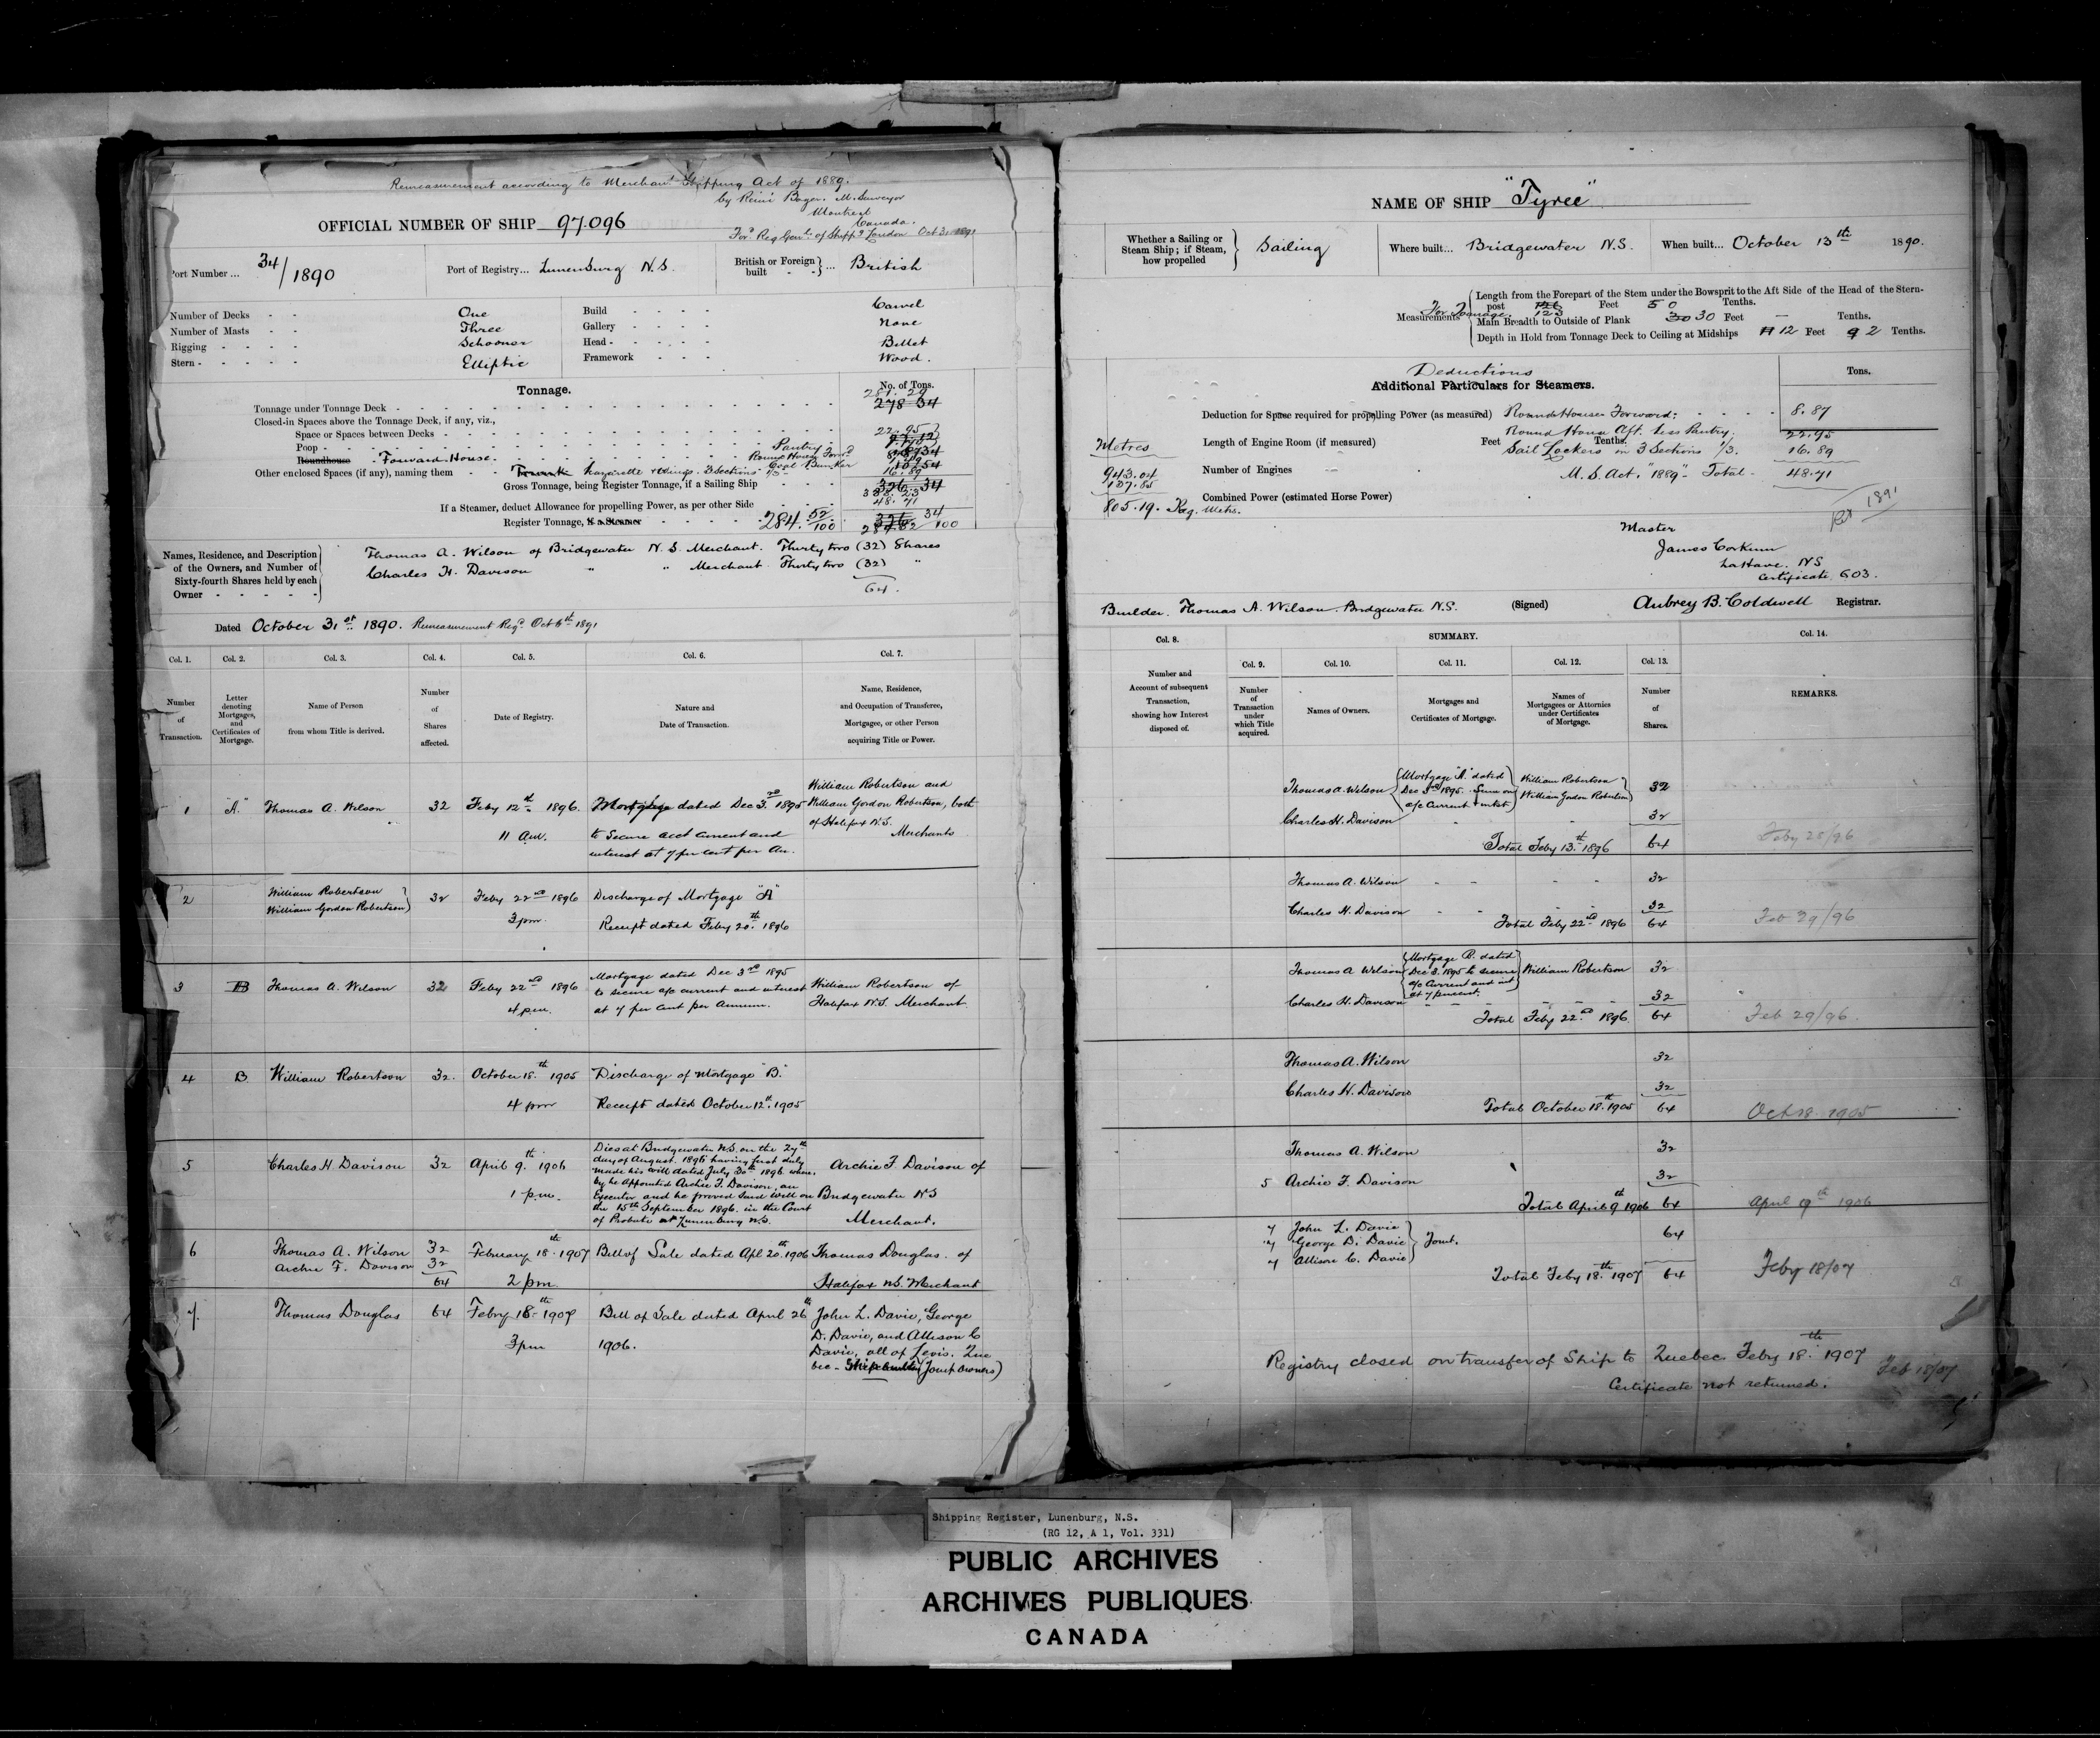 Remeasurement according to Merchant Shipping Act of 1889.
by M. Surveyor
Montreal
Canada.
OFFICIAL NUMBER OF SHIP 97.096
For Reg Genl. of Shipp. London Oct 3, 1891
Port Number ... 34/1890
Port of Registry... Lunenburg N.S.
British or Foreign built } ... British
Number of Decks - - One
Number of Masts - - Three
Rigging - - - - Schooner
Stern - - - - - Elliptic
Build - - - - Carvel
Gallery - - - - None
Head - - - - - Billet
Framework - - - Wood.
Tonnage.
No. of Tons.
Tonnage under Tonnage Deck - 281. 29 278 34
Closed-in Spaces above the Tonnage Deck, if any, viz.,
Space or Spaces between Decks - 22.95
Poop - Pantry
Roundhouse - Forward House. Round House Forwd
Other enclosed Spaces (if any), naming them - - Trunk Lazarette & Wings. 3 Sections Coal Bunker 16.89
Gross Tonnage, being Register Tonnage, if a Sailing Ship 326.34 333.23
If a Steamer, deduct Allowance for propelling Power, as per other Side 48.71
Register Tonnage, if a Steamer - 284. 52/100 326 34 284.52/100
Names, Residence, and Description of the Owners, and Number of Sixty-fourth Shares held by each Owner - - - - -
Thomas A. Wilson of Bridgewater N.S. Merchant. Thirty two (32) Shares
Charles H. Davison " " Merchant Thirty two (32) "
64.
Dated October 31st 1890. Remeasurement Regd. Oct 6th 1891
Col. 1. Col. 2. Col. 3. Col. 4. Col. 5. Col. 6. Col. 7.
Number of Transaction.
Letter denoting Mortgages, and Certificates of Mortgage.
Name of Person from whom Title is derived.
Number of Shares affected.
Date of Registry.
Nature and Date of Transaction.
Name, Residence, and Occupation of Transferee, Mortgagee, or other Person acquiring Title or Power.
1 "A" Thomas A. Wilson 32 Feby 12th 1896. 11 a.m.
Mortgage dated Dec 3rd 1895
to secure acct current and
interest at 7 per cent per An.
William Robertson and
William Gordon Robertson, both
of Halifax N.S.
Merchants
2 William Robertson
William Gordon Robertson } 32 Feby 22nd 1896 3 pm.
Discharge of Mortgage "A"
Receipt dated Feby 20th 1896
3 B Thomas A. Wilson 32 Feby 22nd 1896 4 p.m.
Mortgage dated Dec 3rd 1895
to secure a/c current and interest
at 7 per cent per Annum.
William Robertson of
Halifax N.S. Merchant
4 B William Robertson 32. October 18th 1905 4 pm
Discharge of Mortgage "B."
Receipt dated October 12th 1905
5 Charles H. Davison 32 April 9th 1906 1 p.m.
Dies at Bridgewater N.S. on the 27th
day of August 1896 having first duly
made his will dated July 30th 1896 where-
by he appointed Archie F. Davison, an
Executor and he proved said Will on
the 15th September 1896. in the Court
of Probate at Lunenburg N.S.
Archie F. Davison of
Bridgewater NS
Merchant.
6 Thomas A. Wilson 32
Archie F. Davison 32
64 February 18th 1907 2 pm
Bill of Sale dated Apl 20th 1906
Thomas Douglas of
Halifax N.S. Merchant
7. Thomas Douglas 64 Febry 18th 1907 3 pm
Bill of Sale dated April 26th
1906.
John L. Davie, George
D. Davie, and Allison C
Davie, all of Levis. Que
bec - Shipbuilders (Joint Owners)
NAME OF SHIP "Tyree"
Whether a Sailing or Steam Ship; if Steam, how propelled } Sailing
Where built... Bridgewater N.S.
When built... October 13th 1890.
For Tonnage
Measurements
Length from the Forepart of the Stem under the Bowsprit to the Aft Side of the Head of the Stern-
post 126 123 Feet 5 0 Tenths.
Main Breadth to Outside of Plank 30 30 Feet - Tenths.
Depth in Hold from Tonnage Deck to Ceiling at Midships 11 12 Feet 9 2 Tenths.
Deductions
Additional Particulars for Steamers.
Tons.
Deduction for Space required for propelling Power (as measured) Round House Forward: 8.87
Round House Aft. less Pantry. 22.95
Length of Engine Room (if measured) Feet Tenths.
Sail Lockers in 3 Sections 1/3. 16.89
Number of Engines
M.S. Act, "1889" - Total - 48.71
Combined Power (estimated Horse Power)
Metres
943.04
137.85
805.19. Reg. Metrs.
Oct 1891
Master
James Corkum
LaHave. NS
Certificate 603.
Builder. Thomas A. Wilson. Bridgewater N.S.
(Signed) Aubrey B. Coldwell Registrar.
Col. 8. SUMMARY. Col. 14.
Col. 9. Col. 10. Col. 11. Col. 12. Col. 13.
Number and Account of subsequent Transaction, showing how Interest disposed of.
Number of Transaction under which Title acquired.
Names of Owners.
Mortgages and Certificates of Mortgage.
Names of Mortgagees or Attornies under Certificates of Mortgage.
Number of Shares.
REMARKS.
Thomas A. Wilson { Mortgage "A" dated
Dec 3rd 1895. Secure on
a/c Current & intst } William Robertson
William Gordon Robertson } 32
Charles H. Davison 32
Total Feby 13th 1896 64 Feby 25/96
Thomas A. Wilson - - - - 32
Charles H. Davison - - 32
Total Feby 22nd 1896 64 Feb 29/96
Thomas A Wilson { Mortgage B. dated
Dec 3. 1895 to secure
a/c Current and int
at 7 percent. } William Robertson 32
Charles H. Davison 32
Total Feby 22nd 1896. 64 Feb 29/96.
Thomas A. Wilson 32
Charles H. Davison 32
Total October 18th 1905 64 Oct 18 1905
Thomas A. Wilson 32
5 Archie F. Davison 32
Total April 9th 1906 64 April 9th 1906
7 John L. Davie
7 George D. Davie
7 Allison C. Davie } Joint. 64
Total Feby 18th 1907 64 Feby 18/07
Registry closed on transfer of Ship to Quebec Feby 18th 1907
Certificate not returned.
Feb 18/07
Shipping Register, Lunenburg, N.S.
(RG 12, A 1, Vol. 331)
PUBLIC ARCHIVES
ARCHIVES PUBLIQUES
CANADA